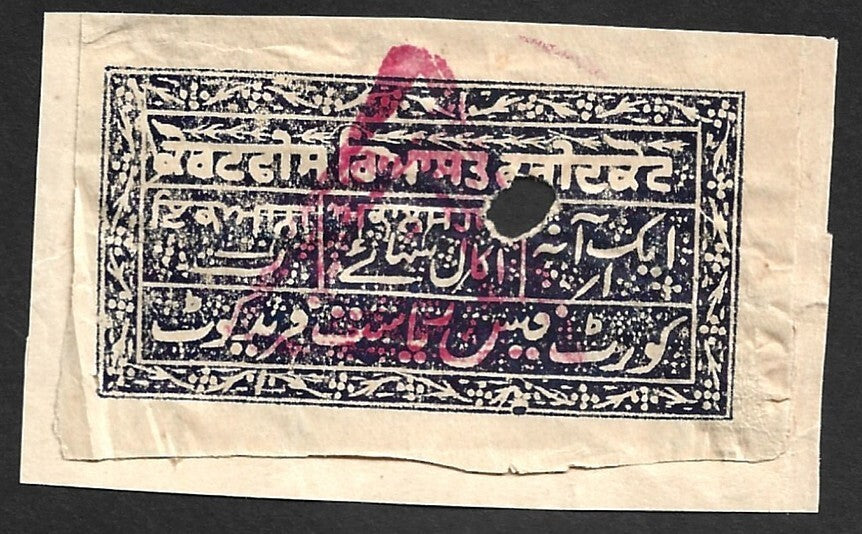 ਕੋਰਟਫੀਸ ਰਿਆਸਤ ਫਰੀਦਕੋਟ
ਇਕਆਨਾ ਅਕਾਲਸਹਾ
ایک آنہ اکال سہائے
کورٹ فیس ریاست فریدکوٹ